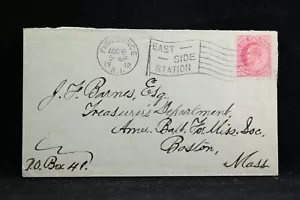 PROVIDENCE
AUG 6
R.I.
EAST
SIDE
STATION
J. F. Barnes, Esq.
Treasurer's Department,
Amer. Bapt. For. Miss. Soc,
Boston,
Mass
P.O. Box 41.